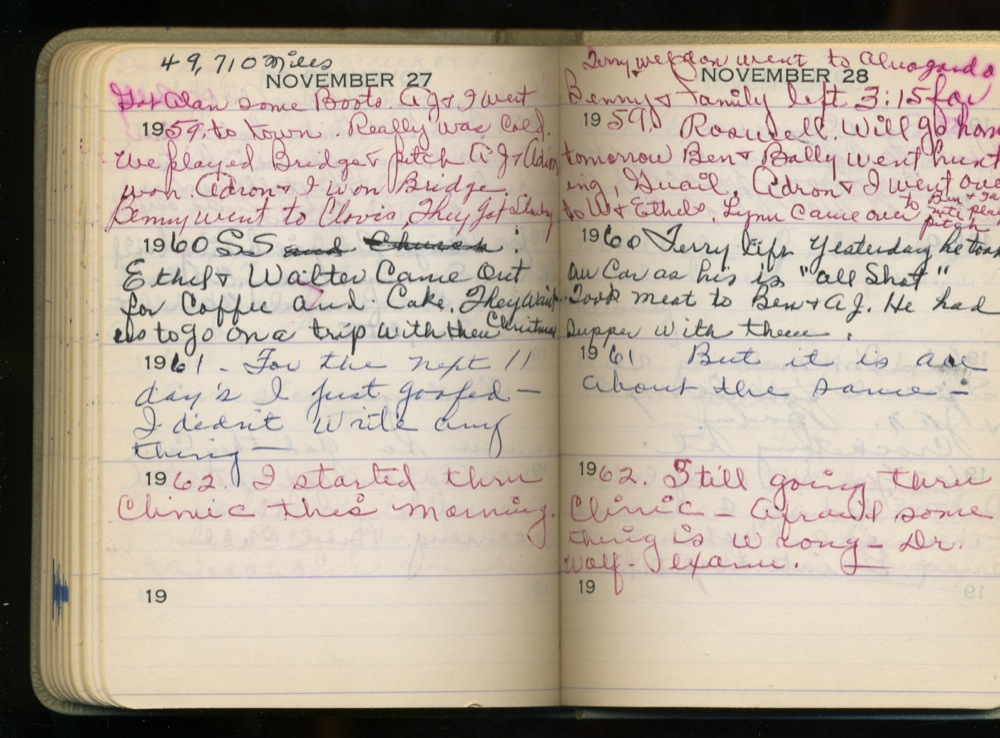 49,710 Miles
NOVEMBER 27
Got Alan some Boots. A J & I went
1959. to town. Really was Cold.
We played Bridge & pitch A J & Adron
won. Adron & I won Bridge.
Benny went to Clovis. They Got
1960 SS and Church.
Ethel & Walter Came Out
for Coffee and Cake. They want
us to go on a trip with them Christmas
1961 - For the next 11
day's I just goofed -
I didn't write any
thing -
1962. I started thru
Clinic this morning.
19
Terry Weldon went to Alvogardo
NOVEMBER 28
Benny & Family left 3:15 for
1959. Roswell. Will go hom
tomorrow Ben & Bally went hunt
ing, Quail. Adron & I went out
to W & Ethels. Lynn Came over to
Ben &
pitch
1960 Terry left Yesterday he took
our Car as his is "all Shot"
Took meat to Ben & A J. He had
Supper with them.
1961 But it is all
about the same -
1962. Still going thru
Clinic - Afraid some
thing is wrong - Dr.
Wolf - exam.
19